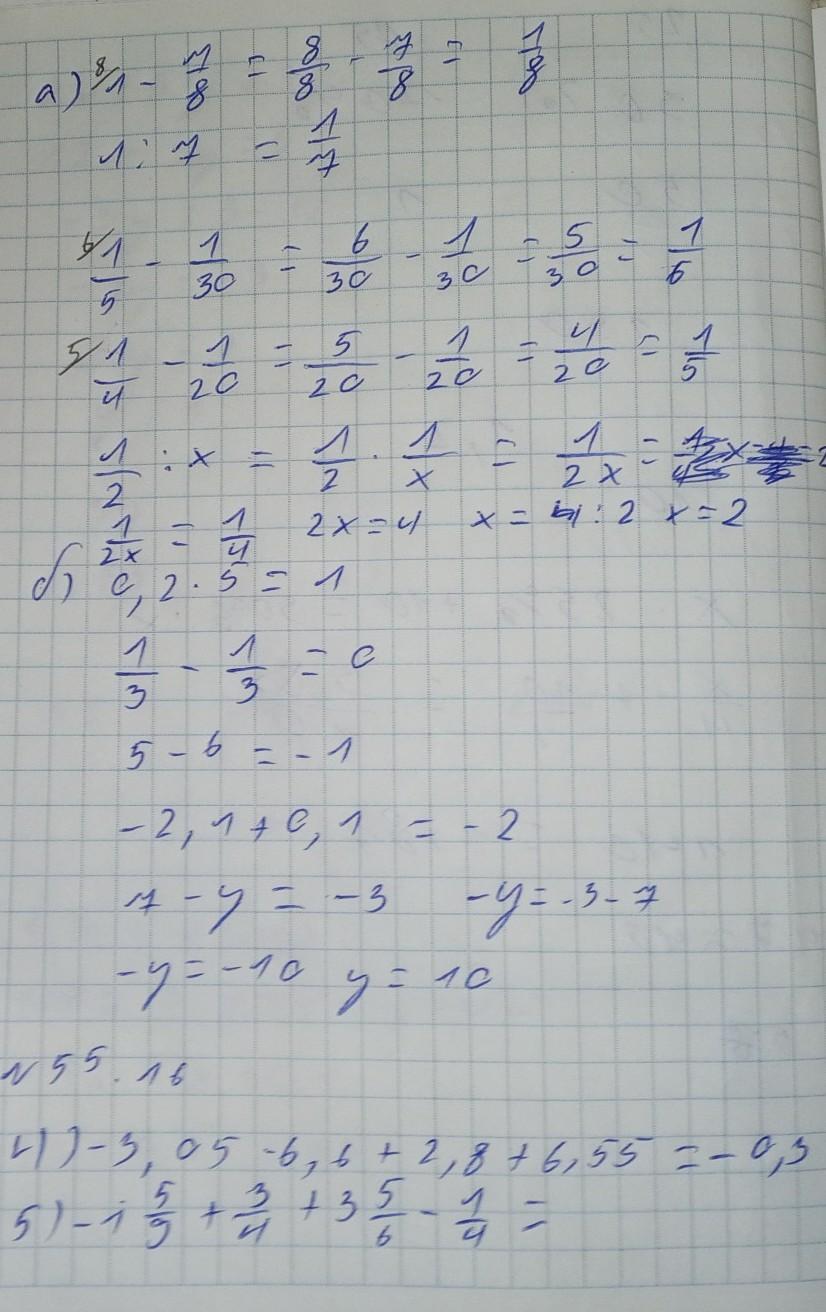 а) ⁸/1 - 7/8 = 8/8 - 7/8 = 1/8
1 : 7 = 1/7
⁶/ 1/5 - 1/30 = 6/30 - 1/30 = 5/30 = 1/6
⁵/ 1/4 - 1/20 = 5/20 - 1/20 = 4/20 = 1/5
1/2 : x = 1/2 · 1/x = 1/2x =
1/2x = 1/4 2x = 4 x = 4 : 2 x = 2
б) 0,2 · 5 = 1
1/3 - 1/3 = 0
5 - 6 = - 1
- 2,1 + 0,1 = - 2
7 - y = - 3 - y = - 3 - 7
- y = - 10 y = 10
N 55.16
4) - 3,05 - 6,6 + 2,8 + 6,55 = - 0,3
5) - 1 5/9 + 3/4 + 3 5/6 - 1/4 =